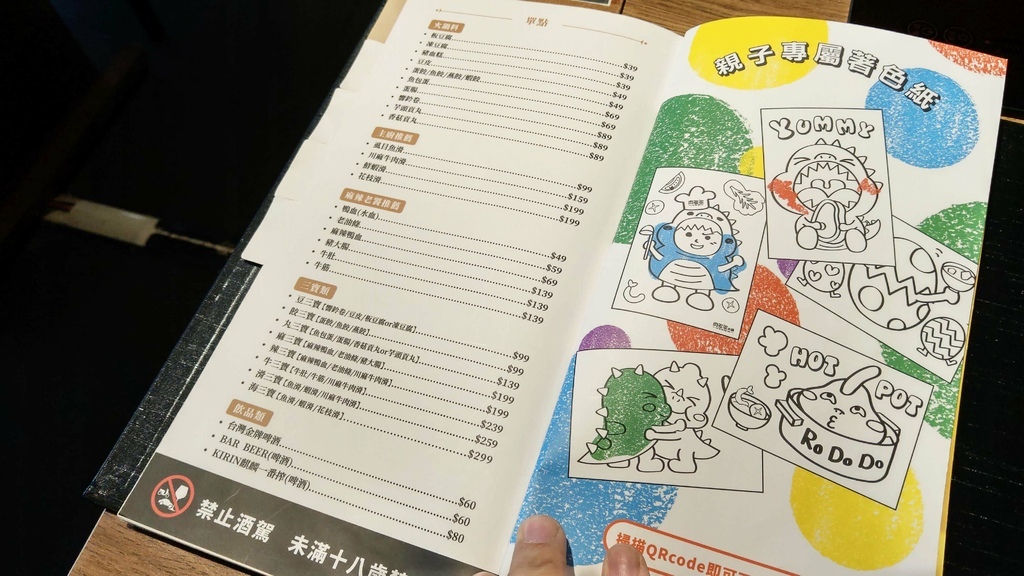 單點
火鍋料
• 板豆腐 $39
• 凍豆腐 $39
• 豬血糕
• 豆皮 $49
• 蛋餃/魚餃/燕餃/蝦餃 $49
• 魚包蛋 $69
• 蛋腸 $69
• 響鈴卷 $89
• 芋頭貢丸 $89
• 香菇貢丸 $89
主廚推薦
• 虱目魚滑 $99
• 川麻牛肉滑 $159
• 鮮蝦滑 $199
• 花枝滑 $199
麻辣老饕推薦
• 鴨血(水血) $49
• 老油條 $59
• 麻辣鴨血 $69
• 豬大腸 $139
• 牛肚 $139
• 牛筋 $139
三寶類
• 豆三寶【響鈴卷/豆皮/板豆腐or凍豆腐】 $99
• 餃三寶【蛋餃/魚餃/燕餃】
• 丸三寶【魚包蛋/蛋腸/香菇貢丸or芋頭貢丸】 $139
• 麻三寶【麻辣鴨血/老油條/豬大腸】 $199
• 辣三寶【麻辣鴨血/老油條/川麻牛肉滑】 $199
• 牛三寶【牛肚/牛筋/川麻牛肉滑】 $239
• 滑三寶【魚滑/蝦滑/川麻牛肉滑】 $259
• 海三寶【魚滑/蝦滑/花枝滑】 $299
飲品類
• 台灣金牌啤酒 $60
• BAR BEER(啤酒) $60
• KIRIN麒麟一番搾(啤酒) $80
禁止酒駕 未滿十八歲禁
親子專屬著色紙
YUMMY
HOT POT
RoDoDo
掃描QRcode即可